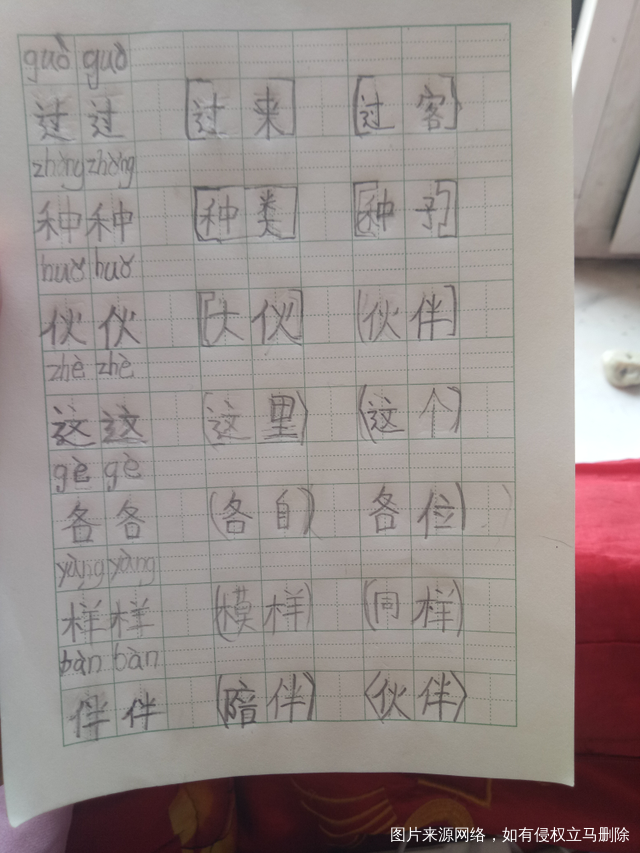 guò guò
过 过 [过来] [过客]
zhǒng zhǒng
种 种 [种类] [种子]
huǒ huǒ
伙 伙 [大伙] (伙伴]
zhè zhè
这 这 (这里) (这个)
gè gè
各 各 (各自) 各位) )
yàng yàng
样 样 (模样) (同样)
bàn bàn
伴 伴 (陪伴) 〈伙伴〉
图片来源网络，如有侵权立马删除